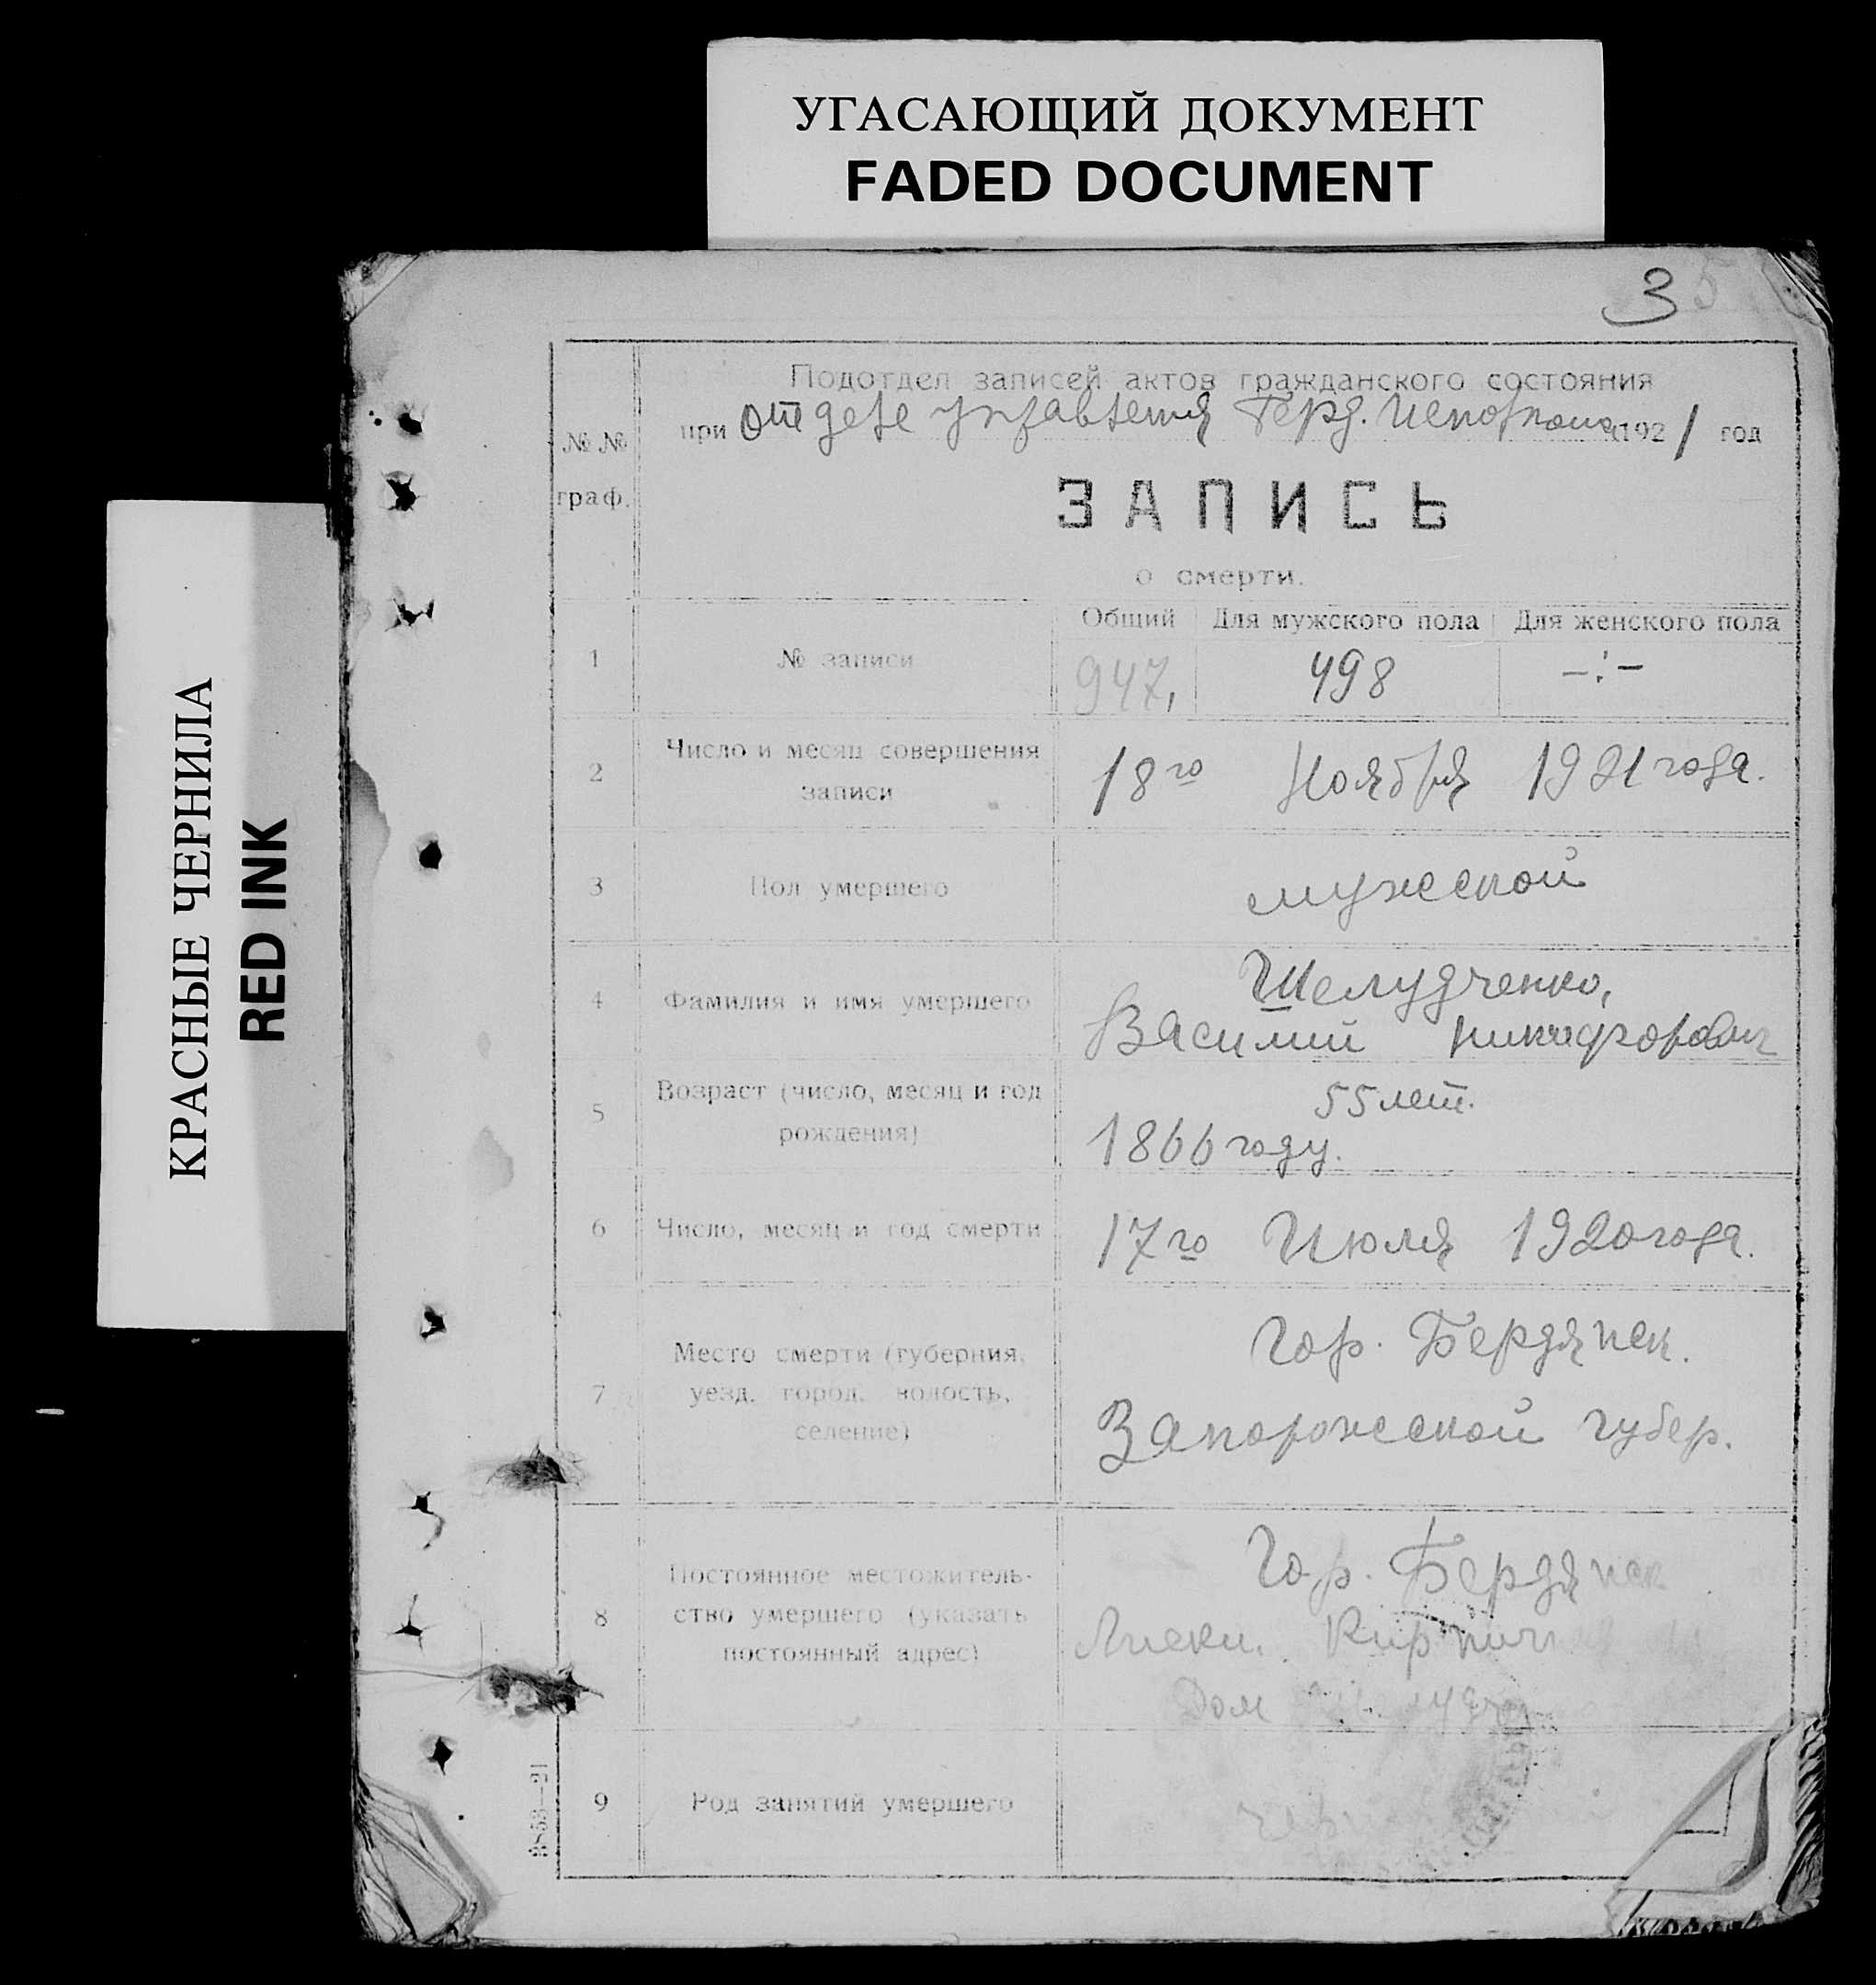 УГАСАЮЩИЙ ДОКУМЕНТ
FADED DOCUMENT
КРАСНЫЕ ЧЕРНИЛА
RED INK
3
№ №
граф.
Подотдел записей актов гражданского состояния
при Отделе управления Берд. Исполкома 1921 год
ЗАПИСЬ
о смерти.
Общий Для мужского пола Для женского пола
1 № записи 947, 498 –:–
2 Число и месяц совершения
записи
18го Ноября 1921 года.
3 Пол умершего мужской
4 Фамилия и имя умершего
Шелудченко,
Василий Никифорович
5 Возраст (число, месяц и год
рождения)
55 лет.
1866 году.
6 Число, месяц и год смерти 17го Июля 1920 года.
7 Место смерти (губерния,
уезд, город, волость,
селение)
Гор. Бердянск.
Запорожской губер.
8 Постоянное местожитель-
ство умершего (указать
постоянный адрес)
Гор. Бердянск
Лиски. Кирпич
Дом
9 Род занятий умершего